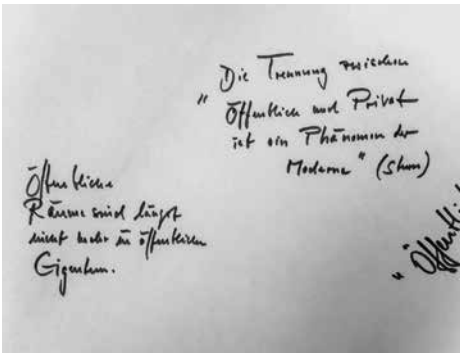 "Die Trennung zwischen
Öffentlich und Privat
ist ein Phänomen der
Moderne"
Öffentliche
Räume sind längst
nicht mehr in öffentlichem
Eigentum.
"Öffentli